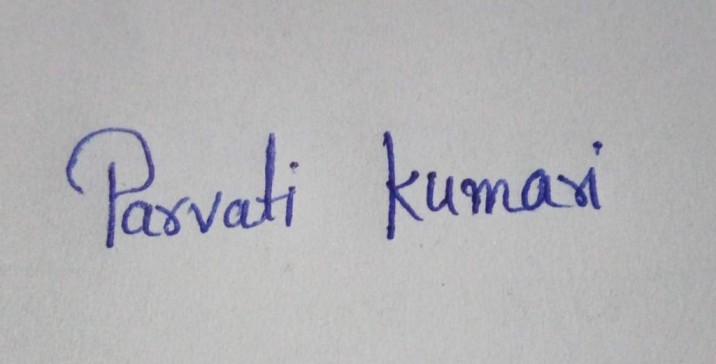 Parvati kumari